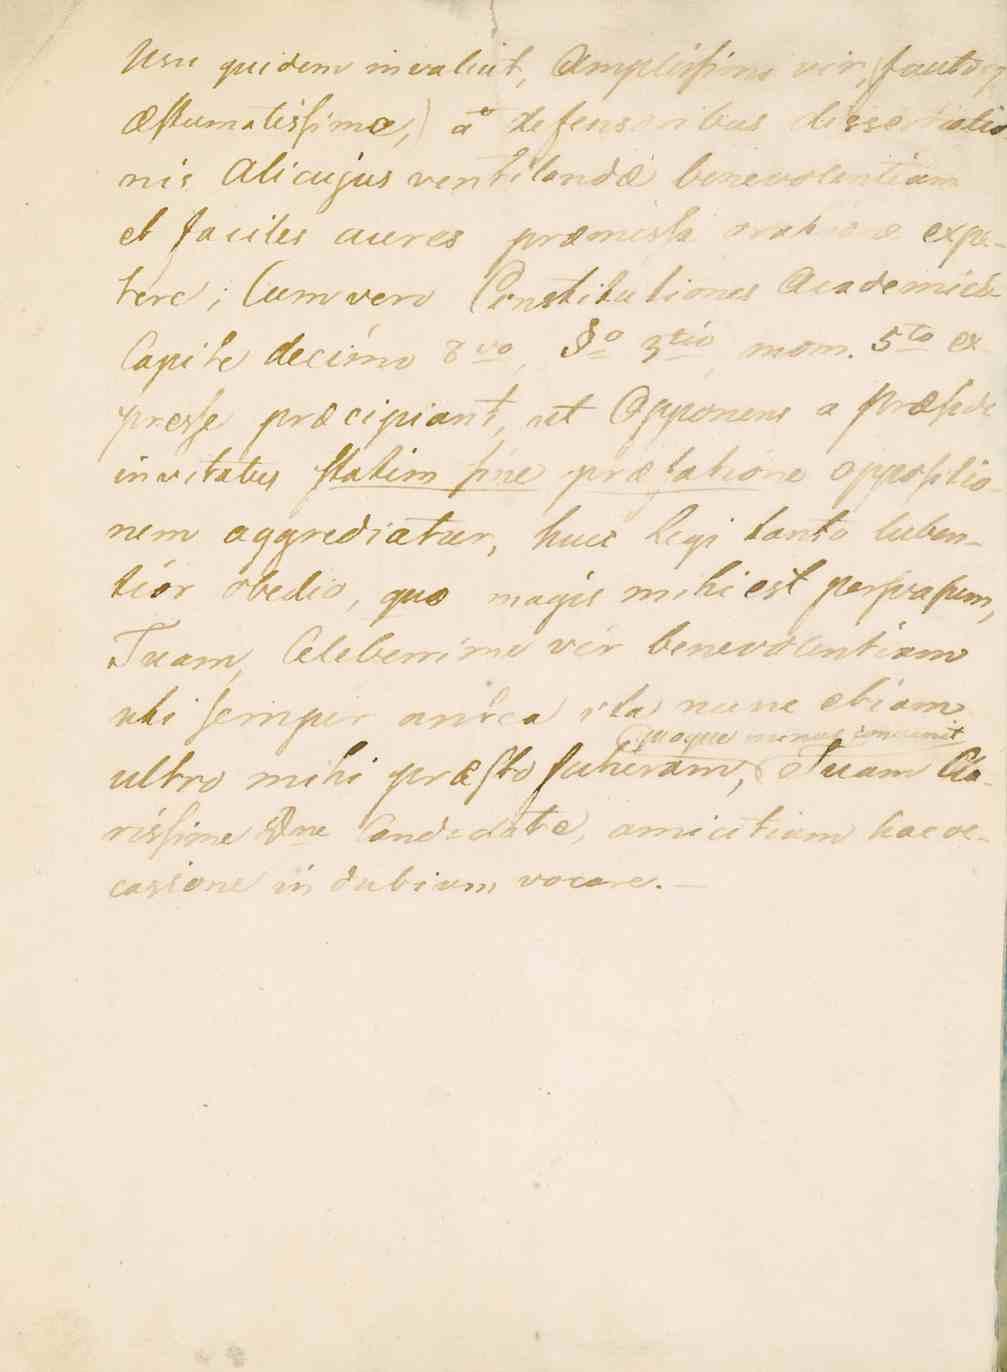 Usu quidem invaluit, Amplissime vir, fautor
æstumatissime,) a defensoribus dissertatio
nis alicujus ventilandæ benevolentiam
et faciles aures præmissa oratione expe-
tere; Cum vero Constitutiones Academicæ
Capite decimo 8vo, §o 3tio mom. 5to ex
presse præcipiant, ut Opponens a præside
invitatus statim sine prætatione oppositio
nem aggrediatur, huic legi tanto luben-
tior obedio, quo magis mihi est persvasum,
Tuam, Celeberrime vir benevolentiam
uti semper antea ita nunc etiam
quoque
ultro mihi præsto futuram, Tuam Cla-
rissime Dne Candidate, amicitiam hac oc-
casione in dubium vocare. —